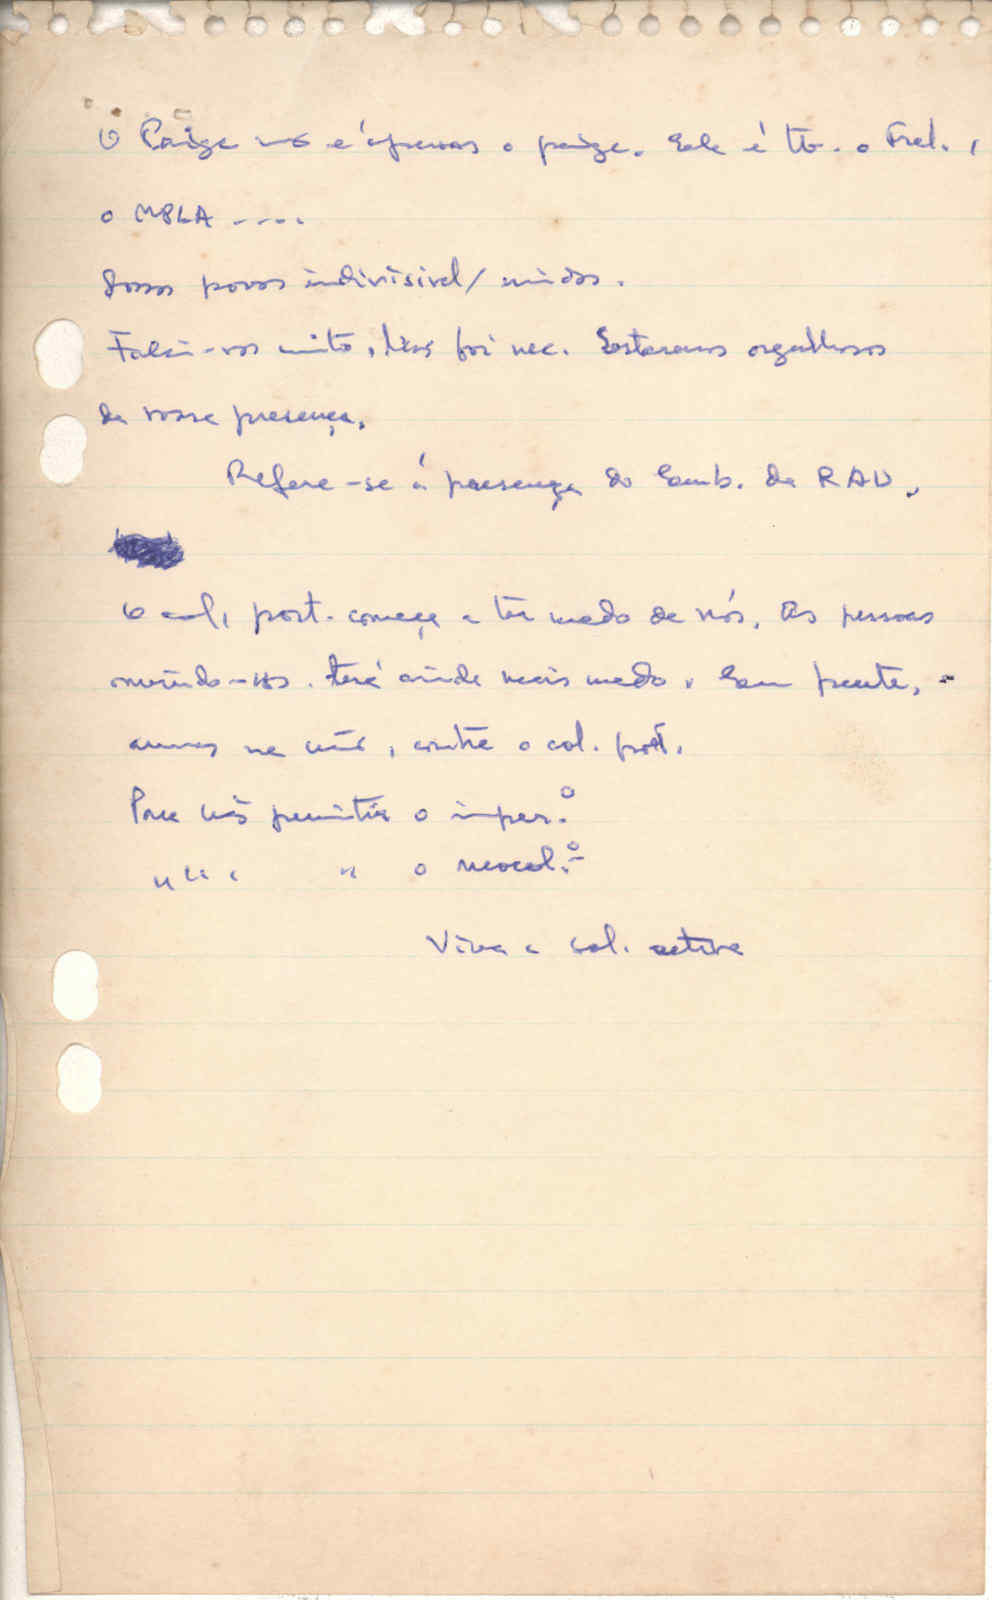 O Paigc não é apenas o paigc. Ele é tb. o Frel.,
o MPLA ....
Nossos povos indivisivel/ unidos.
Falei-vos muito, mas foi nec. Estaremos orgulhosos
da vossa presença.
Refere-se à presença do Emb. da RAU.
O col. port. começa a ter medo de nós. As pessoas
ouvindo-nos. terá ainda mais medo. Em frente,
armas na mão, contra o col. port.
Para não permitir o imper.º
" " " " o neocol.º
Viva a sol. activa